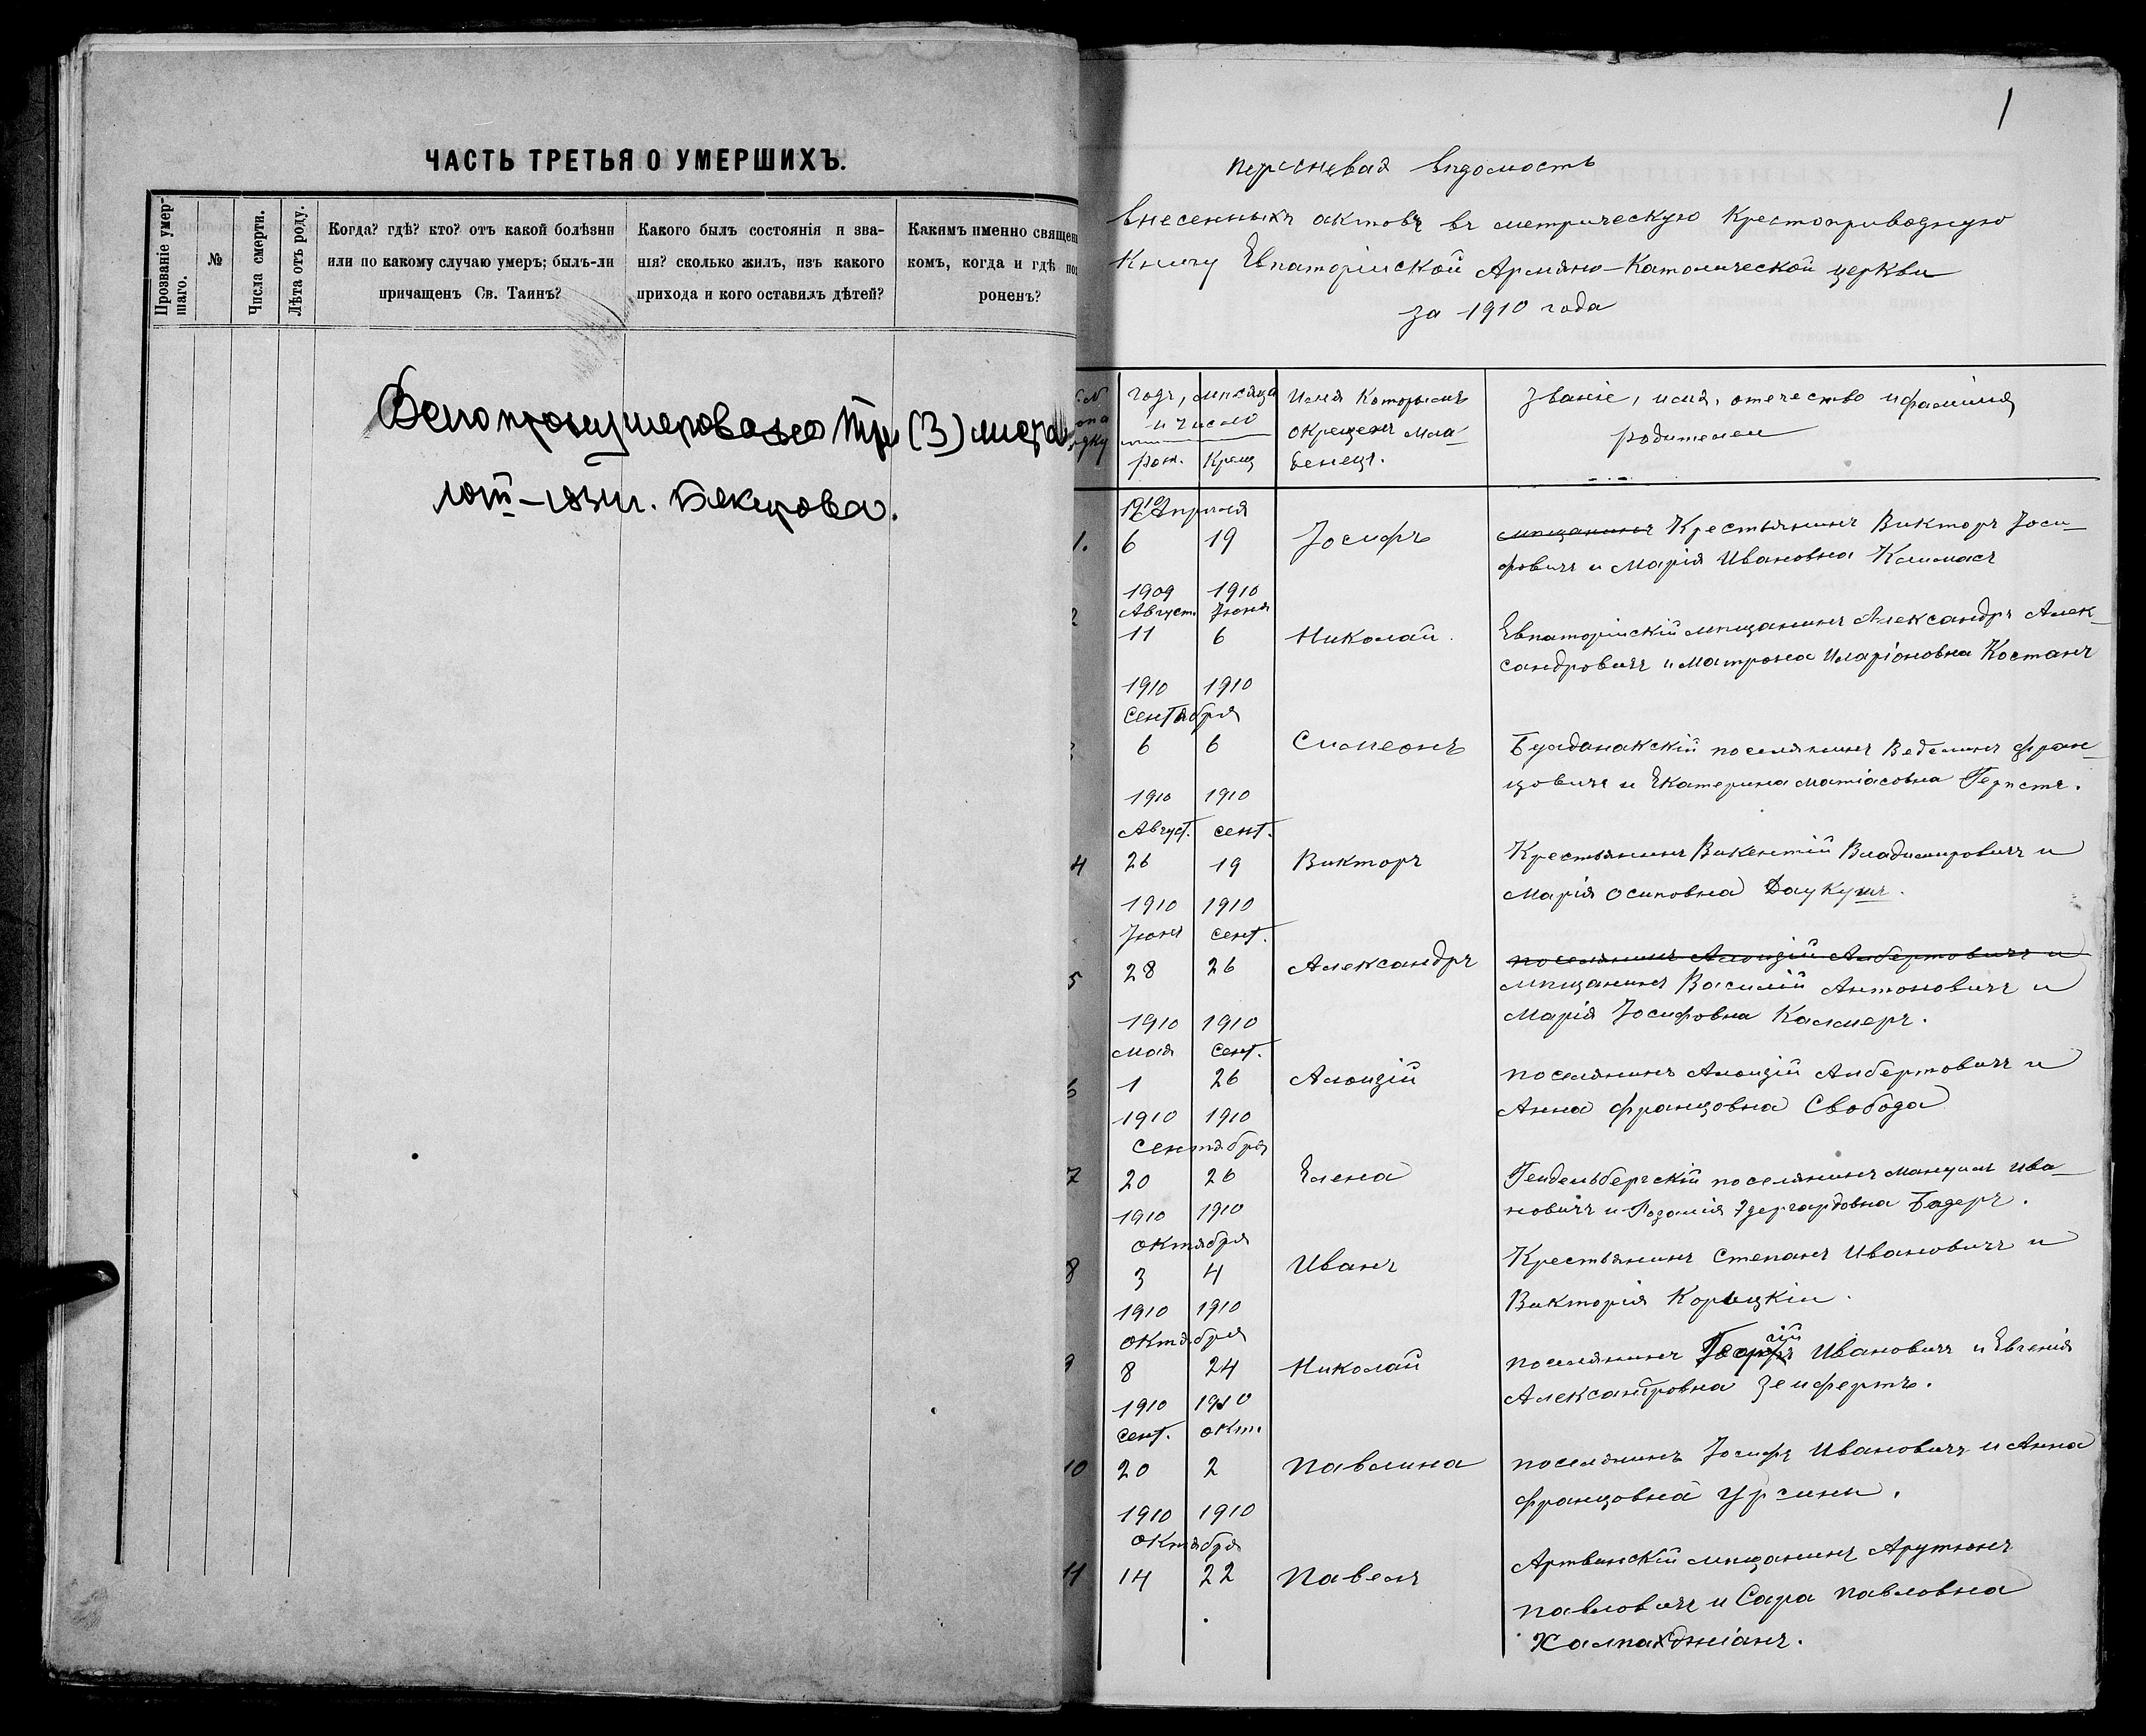 ЧАСТЬ ТРЕТЬЯ О УМЕРШИХЪ.
Прозваніе умер-
шаго.
№
Числа смерти.
Лѣта отъ роду.
Когда? гдѣ? кто? отъ какой болѣзни
или по какому случаю умеръ; былъ-ли
причащенъ Св. Таинъ?
Какого былъ состоянія и зва-
нія? сколько жилъ, изъ какого
прихода и кого оставилъ дѣтей?
Какимъ именно священ
комъ, когда и гдѣ по
роненъ?
пронумеровано три (3) листа
Бекирова.
1
Перечневая Вѣдомость
внесенныхъ актовъ въ метрическую крестоприводную
Книгу Евпаторійской Армяно-Католической церкви
за 1910 года
годъ, мѣсяцъ
и число
рож. Крещ
Имя Которымъ
окрещенъ мла-
денецъ.
Званіе, имя, отчество и фамилія
родителей
1910 Апрѣля
1. 6 19 Іосифъ
мѣщанинъ Крестьянинъ Викторъ Іоси-
фовичъ и Марія Ивановна Климасъ
1909 1910
Август. Іюня
2 11 6 Николай.
Евпаторійскій мѣщанинъ Александръ Алек-
сандровичъ и Матрона Иларіоновна Костанъ
1910 1910
Сентября
6 6 Симеонъ
поселянинъ Фран-
цовичъ и Екатерина Матіасовна Герстъ.
1910 1910
Август. сент.
4 26 19 Викторъ
Крестьянинъ Викентій Владимировичъ и
Марія Осиповна Даукушъ.
1910 1910
Іюня сент.
5 28 26 Александръ
поселянинъ Алоизій Албертовичъ и
мѣщанинъ Василій Антоновичъ и
Марія Іосифовна Каммеръ.
1910 1910
Мая Сент.
6 1 26 Алоизій
поселянинъ Алоизій Албертовичъ и
Анна Францовна Свобода
1910 1910
Сентября
7 20 26 Елена
Гейдельбергскій поселянинъ Ива-
новичъ и Розалія Бадеръ.
1910 1910
Октября
8 3 4 Иванъ
Крестьянинъ Степанъ Ивановичъ и
Викторія Корицкіи.
1910 1910
Октября
9 8 24 Николай
поселянинъ Георгій Ивановичъ и Евгенія
Александровна Зейфертъ.
1910 1910
Сент. Окт.
10 20 2 Павлина
поселянинъ Іосифъ Ивановичъ и Анна
Францовна Урсини.
1910 1910
Октября
11 14 22 Павелъ
Артвинскій мѣщанинъ Арутюнъ
Павловичъ и Сара Павловна
Халпахджіанъ.